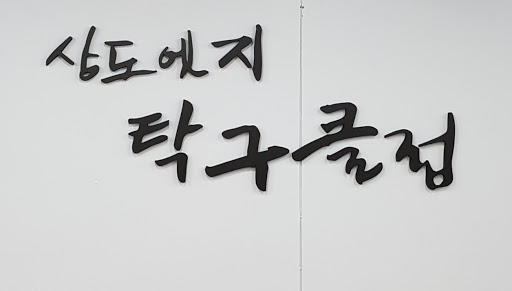 상도엣지
탁구클럽